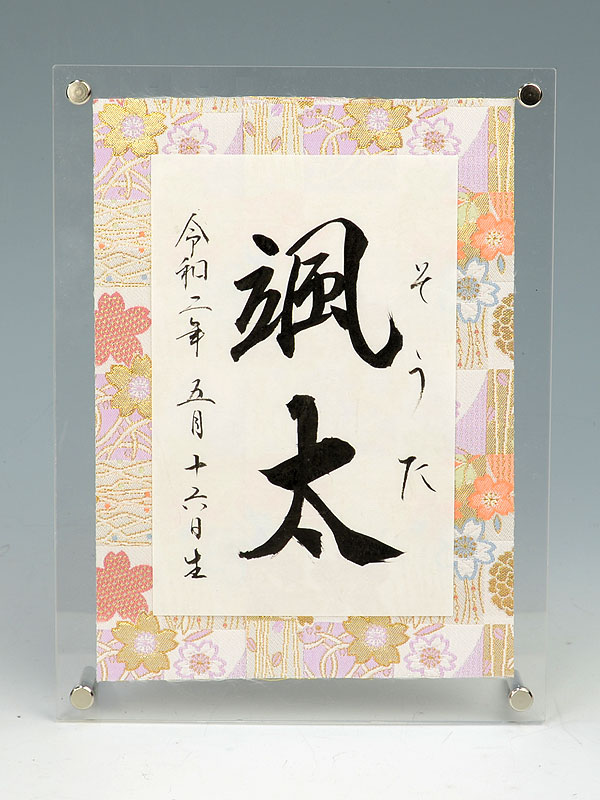 そうた
颯太
令和二年 五月十六日生